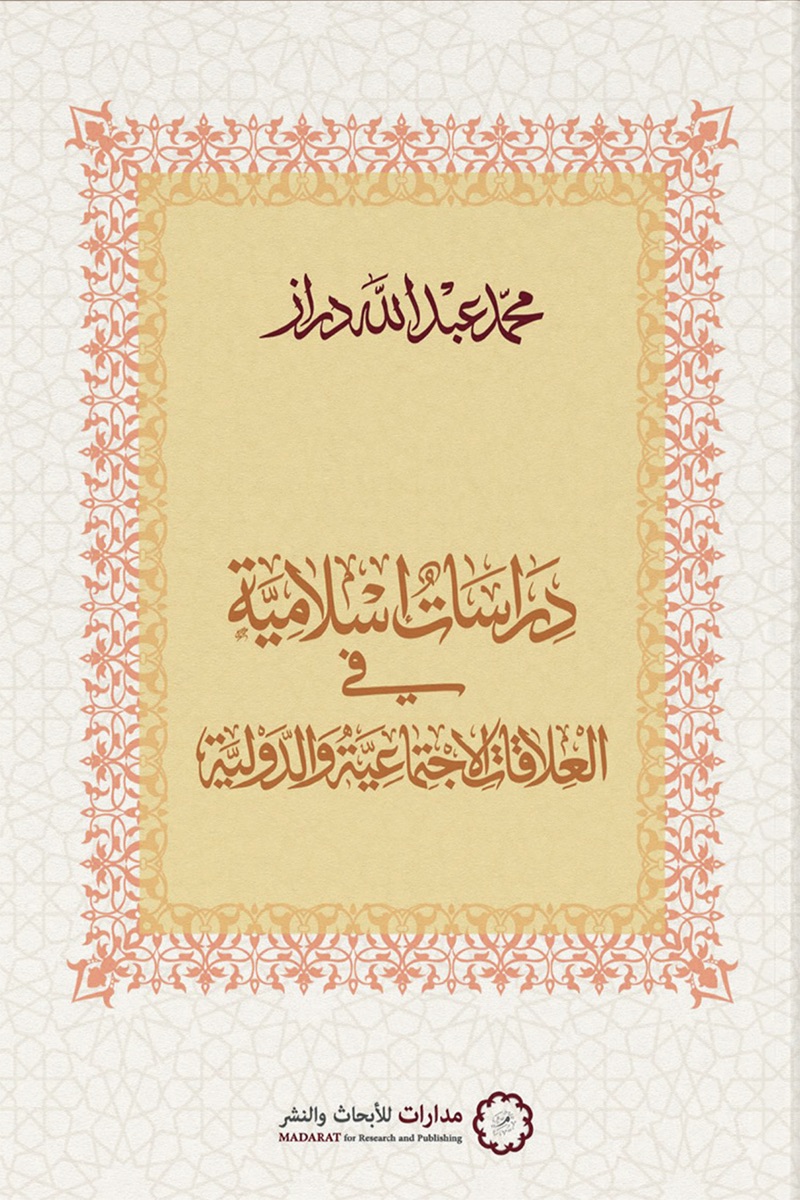 محمد عبد الله دراز
دِرَاسَاتٌ إسْلَامِيَّة
في
العِلَاقَاتِ الاجْتِمَاعِيَّةِ وَالدَّوْلِيَّة
مدارات للأبحاث والنشر
MADARAT for Research and Publishing